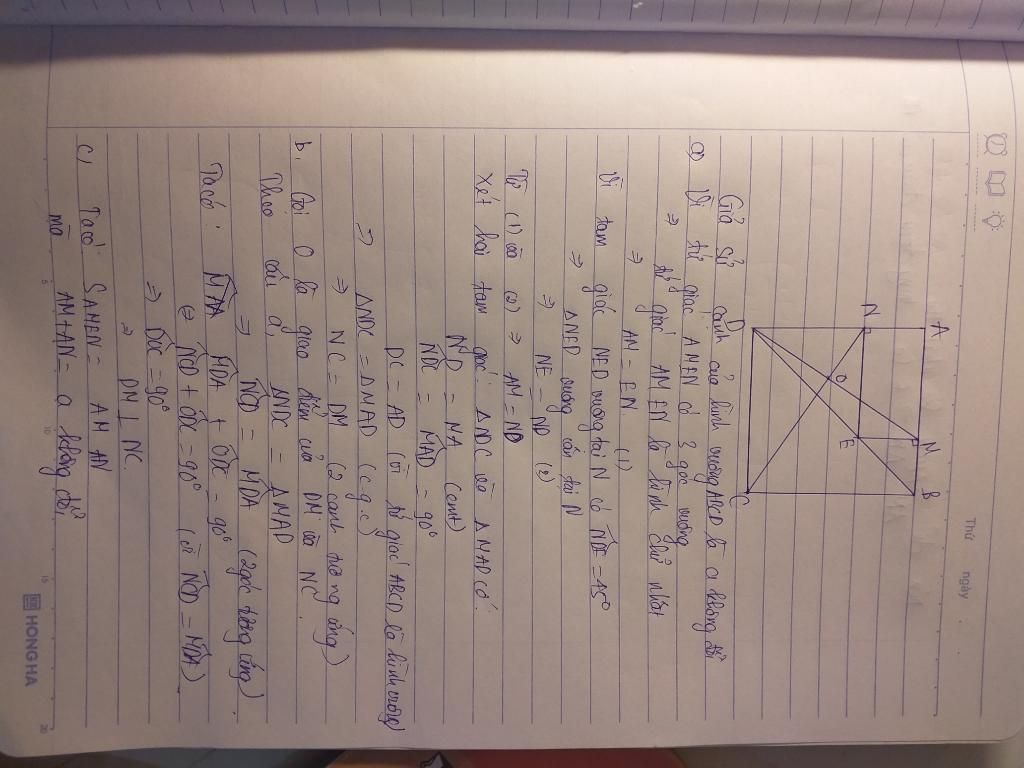 Thứ ngày
A
M
B
N
O
E
D
C
Giả sử cạnh của hình vuông ABCD là a không đổi
a) Vì tứ giác AMEN có 3 góc vuông
⇒ tứ giác AMEN là hình chữ nhật
⇒ AN = EN (1)
Vì tam giác NED vuông tại N có NDE = 45°
⇒ ΔNED vuông cân tại N
⇒ NE = ND (2)
Từ (1) và (2) ⇒ AM = ND
Xét hai tam giác: ΔNDC và ΔMAD có:
ND = MA (cmt)
NDC = MAD = 90°
DC = AD (vì tứ giác ABCD là hình vuông)
⇒ ΔNDC = ΔMAD (c.g.c)
⇒ NC = DM (2 cạnh tương ứng)
b, Gọi O là giao điểm của DM và NC.
Theo câu a, ΔNDC = ΔMAD
⇒ NCD = MDA (2 góc tương ứng).
Ta có: MDA + ODC = 90°
⇔ NCD + ODC = 90° (vì NCD = MDA)
⇒ DOC = 90°
⇒ DM ⊥ NC.
c) Ta có: SAMEN = AM.AN
mà AM + AN = a không đổi
5
10
15
20
HONG HA